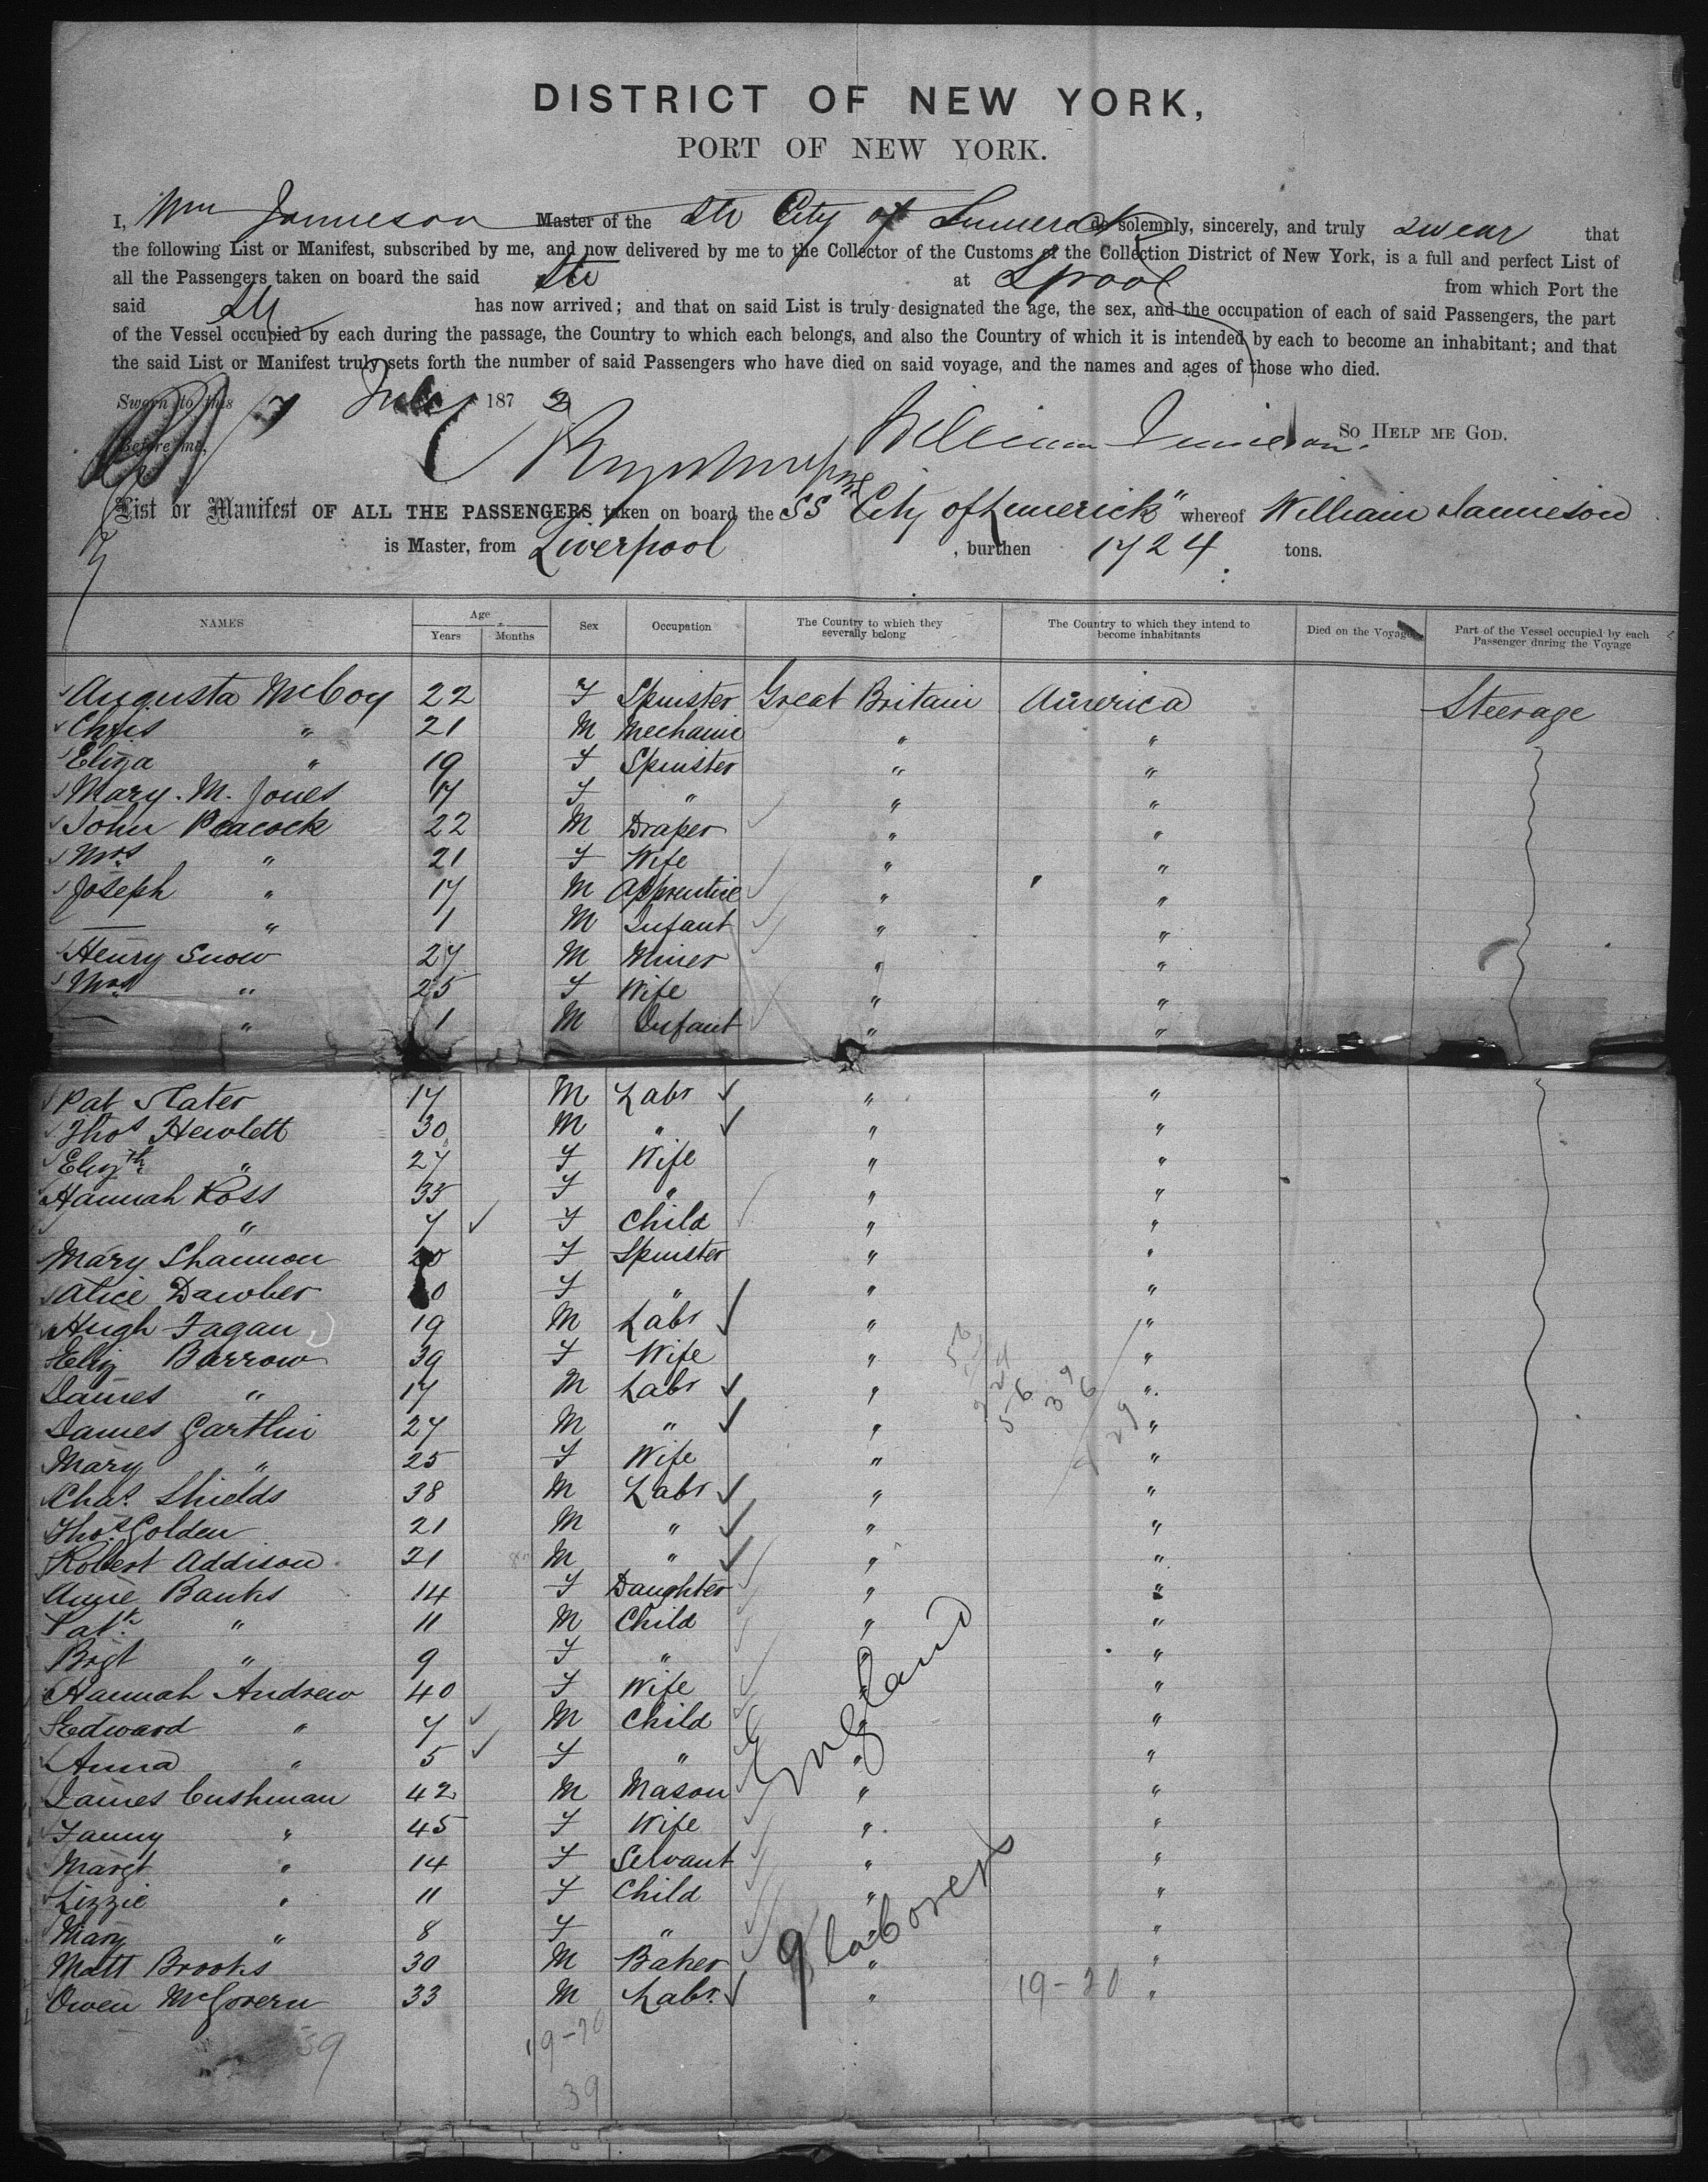 DISTRICT OF NEW YORK,
PORT OF NEW YORK.
I, Wm Jamieson Master of the Str City of Limerick do solemnly, sincerely, and truly swear that
the following List or Manifest, subscribed by me, and now delivered by me to the Collector of the Customs of the Collection District of New York, is a full and perfect List of
all the Passengers taken on board the said Str at Lpool from which Port the
said Str has now arrived; and that on said List is truly designated the age, the sex, and the occupation of each of said Passengers, the part
of the Vessel occupied by each during the passage, the Country to which each belongs, and also the Country of which it is intended by each to become an inhabitant; and that
the said List or Manifest truly sets forth the number of said Passengers who have died on said voyage, and the names and ages of those who died.
Sworn to this July 1872
William Jamieson. SO HELP ME GOD.
Before me,
List or Manifest OF ALL THE PASSENGERS taken on board the SS "City of Limerick" whereof William Jamieson
is Master, from Liverpool, burthen 1724 tons.
NAMES Age Years Months Sex Occupation The Country to which they severally belong The Country to which they intend to become inhabitants Died on the Voyage Part of the Vessel occupied by each Passenger during the Voyage
Augusta McCoy 22 F Spinster Great Britain America Steerage
Chris " 21 M Mechanic " "
Eliza " 19 F Spinster " "
Mary. M. Jones 17 F " " "
John Peacock 22 M Draper " "
Mrs " 21 F Wife " "
Joseph " 17 M Apprentice " "
— " 1 M Infant " "
Henry Snow 27 M Miner " "
Mrs " 25 F Wife " "
— " 1 M Infant " "
Pat Slater 17 M Labr " "
Thos Hewlett 30 M " " "
Elizth " 27 F Wife " "
Hannah Ross 35 F " " "
" 7 F Child " "
Mary Shannon 20 F Spinster " "
Alice Dawber F " " "
Hugh Fagan 19 M Labr " "
Eliz Barrow 39 F Wife " "
James " 17 M Labr " "
James Garthin 27 M " " "
Mary " 25 F Wife " "
Chas. Shields 38 M Labr " "
Thos. Golden 21 M " " "
Robert Addison 21 M " " "
Annie Banks 14 F Daughter " "
Patk " 11 M Child " "
Brgt " 9 F " " "
Hannah Andrew 40 F Wife " "
Edward " 7 M Child " "
Anna " 5 F " " "
England
James Cushman 42 M Mason " "
Fanny " 45 F Wife " "
Margt " 14 F Servant " "
Lizzie " 11 F Child " "
Mary " 8 F " " "
9 laborers
Matt Brooks 30 M Baker " "
Owen McGovern 33 M Labr. " 19-20 "
39 19-20
39